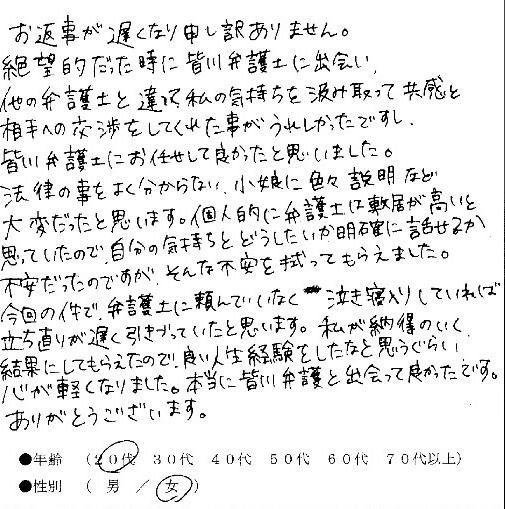 お返事が遅くなり申し訳ありません。
絶望的だった時に皆川弁護士に出会い、
他の弁護士と違って私の気持ちを汲み取って共感と
相手への交渉をしてくれた事がうれしかったですし、
皆川弁護士にお任せして良かったと思いました。
法律の事をよく分からない、小娘に色々説明など
大変だったと思います。個人的に弁護士は敷居が高いと
思っていたので、自分の気持ちとどうしたいか明確に話せるか
不安だったのですが、そんな不安を拭ってもらえました。
今回の件で、弁護士に頼んでいなく泣き寝入りしていれば
立ち直りが遅く引きづっていたと思います。私が納得のいく
結果にしてもらえたので、良い人生経験をしたなと思うぐらい
心が軽くなりました。本当に皆川弁護と出会って良かったです。
ありがとうございます。
●年齢 （20代 30代 40代 50代 60代 70代以上）
●性別 （ 男 ／ 女 ）